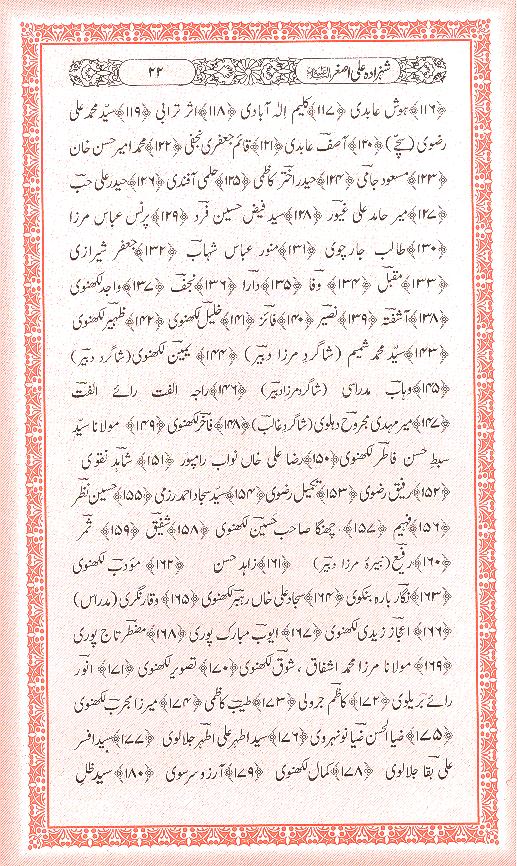 شہزادہ علی اصغر
۲۲
﴿۱۱۶﴾ہوش عابدی ﴿۱۱۷﴾کلیم الہ آبادی ﴿۱۱۸﴾اثر ترابی ﴿۱۱۹﴾سیّد محمد علی
رضوی (سچّے) ﴿۱۲۰﴾آصف عابدی ﴿۱۲۱﴾قائم جعفری نجفی ﴿۱۲۲﴾محمد امیر حسن خان
﴿۱۲۳﴾مسعود جامی ﴿۱۲۴﴾حیدر اختر کاظمی ﴿۱۲۵﴾حلمی آفندی ﴿۱۲۶﴾حیدر علی حب
﴿۱۲۷﴾میر حامد علی غیور ﴿۱۲۸﴾سید فیض حسین فرد ﴿۱۲۹﴾پرنس عباس مرزا
﴿۱۳۰﴾طالب جارچوی ﴿۱۳۱﴾منور عباس شہاب ﴿۱۳۲﴾جعفر شیرازی
﴿۱۳۳﴾مقبل ﴿۱۳۴﴾وفا ﴿۱۳۵﴾دارا ﴿۱۳۶﴾نجف ﴿۱۳۷﴾واجد لکھنوی
﴿۱۳۸﴾آشفتہ ﴿۱۳۹﴾نصیر ﴿۱۴۰﴾فائز ﴿۱۴۱﴾خلیل لکھنوی ﴿۱۴۲﴾ظہیر لکھنوی
﴿۱۴۳﴾سیّد محمد شمیم (شاگردِ مرزا دبیر) ﴿۱۴۴﴾یمین لکھنوی (شاگرد دبیر)
﴿۱۴۵﴾وہاب مدراسی (شاگرد مرزا دبیر) ﴿۱۴۶﴾راجہ الفت رائے الفت
﴿۱۴۷﴾میر مہدی مجروح دہلوی (شاگردِ غالب) ﴿۱۴۸﴾فاخر لکھنوی ﴿۱۴۹﴾مولانا سیّد
سبط حسن فاطر لکھنوی ﴿۱۵۰﴾رضا علی خاں نواب رامپور ﴿۱۵۱﴾شاہد نقوی
﴿۱۵۲﴾رفیق رضوی ﴿۱۵۳﴾تکمیل رضوی ﴿۱۵۴﴾سید سجاد احمد رزمی ﴿۱۵۵﴾حسین نظر
﴿۱۵۶﴾فہیم ﴿۱۵۷﴾چھنگا صاحب حسین لکھنوی ﴿۱۵۸﴾شفیق ﴿۱۵۹﴾ثمر
﴿۱۶۰﴾رفیع (نبیرۂ مرزا دبیر) ﴿۱۶۱﴾زاہد حسن ﴿۱۶۲﴾مؤدب لکھنوی
﴿۱۶۳﴾نگار بارہ بنکوی ﴿۱۶۴﴾سجاد علی خاں رہبر لکھنوی ﴿۱۶۵﴾وقار نگری (مدراس)
﴿۱۶۶﴾اعجاز زیدی لکھنوی ﴿۱۶۷﴾ایوب مبارک پوری ﴿۱۶۸﴾مضطر تاج پوری
﴿۱۶۹﴾مولانا مرزا محمد اشفاق ، شوق لکھنوی ﴿۱۷۰﴾تصویر لکھنوی ﴿۱۷۱﴾انور
رائے بریلوی ﴿۱۷۲﴾کاظم جرولی ﴿۱۷۳﴾طیب کاظمی ﴿۱۷۴﴾میرزا مجرب لکھنوی
﴿۱۷۵﴾ضیا الحسن ضیا نونہروی ﴿۱۷۶﴾سید اطہر علی اطہر جلالوی ﴿۱۷۷﴾سید افسر
علی بقا جلالوی ﴿۱۷۸﴾کمال لکھنوی ﴿۱۷۹﴾آرزو سرسوی ﴿۱۸۰﴾سید ظلِ